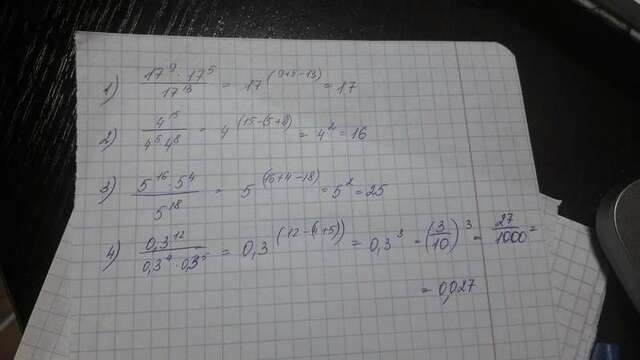 1) 17⁹ · 17⁵ / 17¹³ = 17^(9+5-13) = 17
2) 4¹⁵ / 4⁵ 4⁸ = 4^(15-(5+8)) = 4² = 16
3) 5¹⁶ · 5⁴ / 5¹⁸ = 5^(16+4-18) = 5² = 25
4) 0,3¹² / 0,3⁴ · 0,3⁵ = 0,3^(12-(4+5)) = 0,3³ = (3/10)³ = 27/1000 =
= 0,027